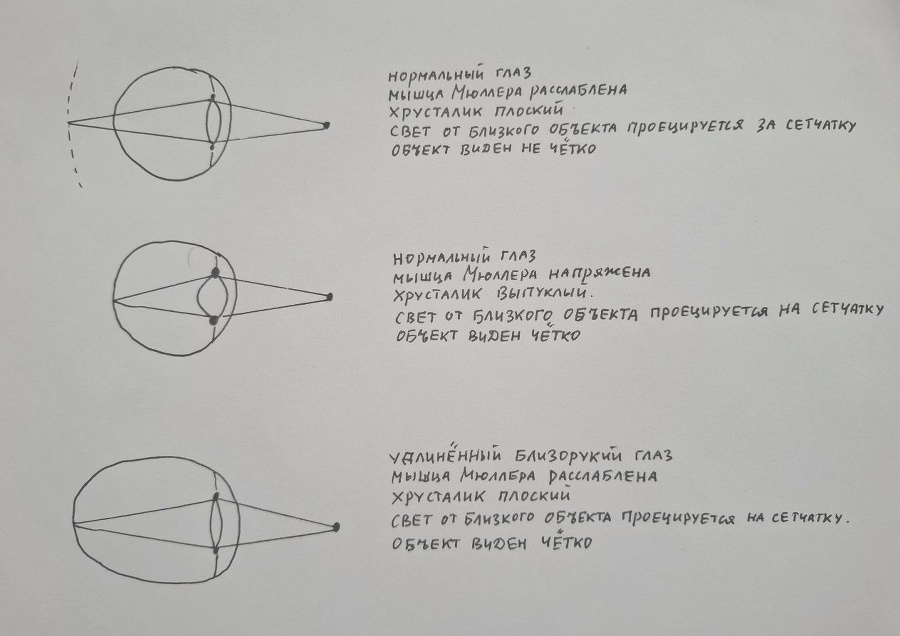 НОРМАЛЬНЫЙ ГЛАЗ
МЫШЦА МЮЛЛЕРА РАССЛАБЛЕНА
ХРУСТАЛИК ПЛОСКИЙ
СВЕТ ОТ БЛИЗКОГО ОБЪЕКТА ПРОЕЦИРУЕТСЯ ЗА СЕТЧАТКУ
ОБЪЕКТ ВИДЕН НЕ ЧЁТКО
НОРМАЛЬНЫЙ ГЛАЗ
МЫШЦА МЮЛЛЕРА НАПРЯЖЕНА
ХРУСТАЛИК ВЫПУКЛЫЙ.
СВЕТ ОТ БЛИЗКОГО ОБЪЕКТА ПРОЕЦИРУЕТСЯ НА СЕТЧАТКУ
ОБЪЕКТ ВИДЕН ЧЁТКО
УДЛИНЁННЫЙ БЛИЗОРУКИЙ ГЛАЗ
МЫШЦА МЮЛЛЕРА РАССЛАБЛЕНА
ХРУСТАЛИК ПЛОСКИЙ
СВЕТ ОТ БЛИЗКОГО ОБЪЕКТА ПРОЕЦИРУЕТСЯ НА СЕТЧАТКУ.
ОБЪЕКТ ВИДЕН ЧЁТКО